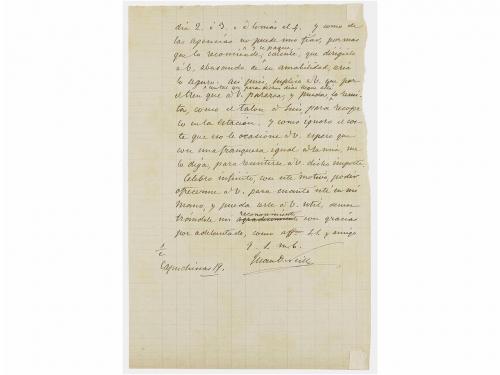 dia 2. ó 3. ó á lo mas el 4. y como de
las agencias no puede uno fiar, por mas
que la recomiende, y se pague, calculé, que dirigirla
á V. abusando de su amabilidad, seria
lo seguro. asi pues, suplico á V. que por
el tren que á V. parezca, y pueda, la remita,
como el talon á Luis, para recogerlo
en la estación. y como ignoro el coste
que eso le ocasione á V. espero que
con una franqueza igual á la mia, me
lo diga, para remitirse á V. dicho importe.
Celebro infinito, con este motivo, poder
ofrecerme á V. para cuanto esté en mi
mano, y pueda serle á V. util, demostrándole
mi reconocimiento con gracias
por adelantado, como affmo S.S. y amigo
Q. S. M. B.
Juan O'Neille
S/c
Capuchinas 19.